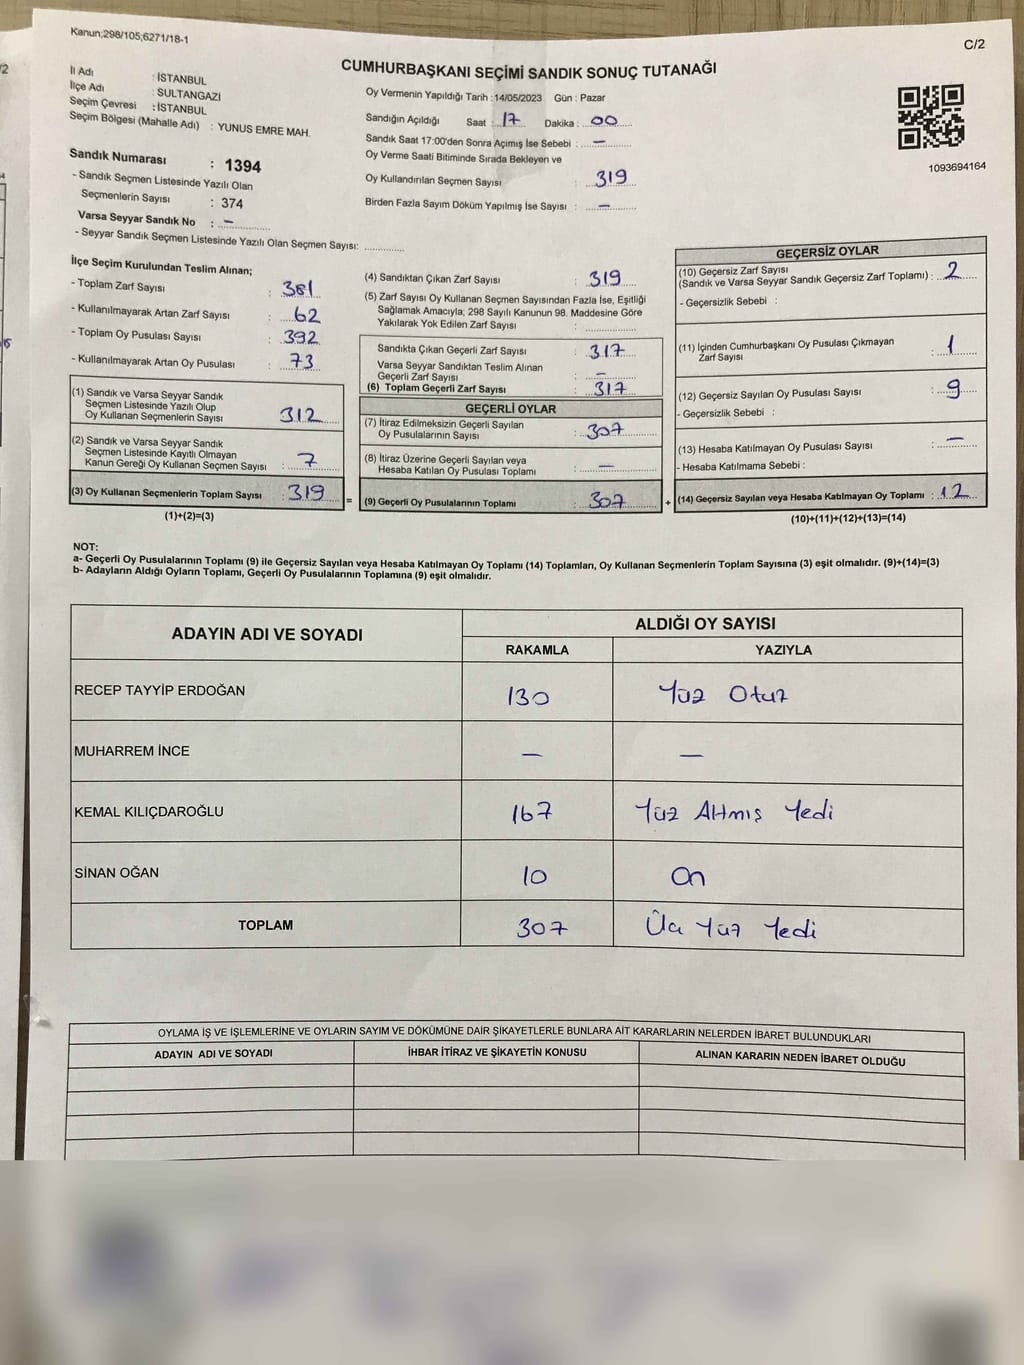 Kanun;298/105;6271/18-1
C/2
CUMHURBAŞKANI SEÇİMİ SANDIK SONUÇ TUTANAĞI
İl Adı : İSTANBUL
İlçe Adı : SULTANGAZİ
Seçim Çevresi : İSTANBUL
Seçim Bölgesi (Mahalle Adı) : YUNUS EMRE MAH.
Sandık Numarası : 1394
- Sandık Seçmen Listesinde Yazılı Olan
Seçmenlerin Sayısı : 374
Varsa Seyyar Sandık No : –
- Seyyar Sandık Seçmen Listesinde Yazılı Olan Seçmen Sayısı: ..............
Oy Vermenin Yapıldığı Tarih : 14/05/2023 Gün : Pazar
Sandığın Açıldığı Saat : 17 Dakika : 00
Sandık Saat 17:00'den Sonra Açımış İse Sebebi : –
Oy Verme Saati Bitiminde Sırada Bekleyen ve
Oy Kullandırılan Seçmen Sayısı : 319
Birden Fazla Sayım Döküm Yapılmış İse Sayısı : –
1093694164
İlçe Seçim Kurulundan Teslim Alınan;
- Toplam Zarf Sayısı : 381
- Kullanılmayarak Artan Zarf Sayısı : 62
- Toplam Oy Pusulası Sayısı : 392
- Kullanılmayarak Artan Oy Pusulası : 73
(1) Sandık ve Varsa Seyyar Sandık
Seçmen Listesinde Yazılı Olup
Oy Kullanan Seçmenlerin Sayısı : 312
(2) Sandık ve Varsa Seyyar Sandık
Seçmen Listesinde Kayıtlı Olmayan
Kanun Gereği Oy Kullanan Seçmen Sayısı : 7
(3) Oy Kullanan Seçmenlerin Toplam Sayısı : 319
(1)+(2)=(3)
=
(4) Sandıktan Çıkan Zarf Sayısı : 319
(5) Zarf Sayısı Oy Kullanan Seçmen Sayısından Fazla İse, Eşitliği
Sağlamak Amacıyla; 298 Sayılı Kanunun 98. Maddesine Göre
Yakılarak Yok Edilen Zarf Sayısı : ..............
Sandıkta Çıkan Geçerli Zarf Sayısı : 317
Varsa Seyyar Sandıktan Teslim Alınan
Geçerli Zarf Sayısı : –
(6) Toplam Geçerli Zarf Sayısı : 317
GEÇERLİ OYLAR
(7) İtiraz Edilmeksizin Geçerli Sayılan
Oy Pusulalarının Sayısı : 307
(8) İtiraz Üzerine Geçerli Sayılan veya
Hesaba Katılan Oy Pusulası Toplamı : –
(9) Geçerli Oy Pusulalarının Toplamı : 307
+
GEÇERSİZ OYLAR
(10) Geçersiz Zarf Sayısı
(Sandık ve Varsa Seyyar Sandık Geçersiz Zarf Toplamı) : 2
- Geçersizlik Sebebi :
(11) İçinden Cumhurbaşkanı Oy Pusulası Çıkmayan
Zarf Sayısı : 1
(12) Geçersiz Sayılan Oy Pusulası Sayısı : 9
- Geçersizlik Sebebi :
(13) Hesaba Katılmayan Oy Pusulası Sayısı : –
- Hesaba Katılmama Sebebi :
(14) Geçersiz Sayılan veya Hesaba Katılmayan Oy Toplamı : 12
(10)+(11)+(12)+(13)=(14)
NOT:
a- Geçerli Oy Pusulalarının Toplamı (9) ile Geçersiz Sayılan veya Hesaba Katılmayan Oy Toplamı (14) Toplamları, Oy Kullanan Seçmenlerin Toplam Sayısına (3) eşit olmalıdır. (9)+(14)=(3)
b- Adayların Aldığı Oyların Toplamı, Geçerli Oy Pusulalarının Toplamına (9) eşit olmalıdır.
ADAYIN ADI VE SOYADI
ALDIĞI OY SAYISI
RAKAMLA YAZIYLA
RECEP TAYYİP ERDOĞAN 130 Yüz Otuz
MUHARREM İNCE – –
KEMAL KILIÇDAROĞLU 167 Yüz Altmış Yedi
SİNAN OĞAN 10 On
TOPLAM 307 Üç Yüz Yedi
OYLAMA İŞ VE İŞLEMLERİNE VE OYLARIN SAYIM VE DÖKÜMÜNE DAİR ŞİKAYETLERLE BUNLARA AİT KARARLARIN NELERDEN İBARET BULUNDUKLARI
ADAYIN ADI VE SOYADI İHBAR İTİRAZ VE ŞİKAYETİN KONUSU ALINAN KARARIN NEDEN İBARET OLDUĞU